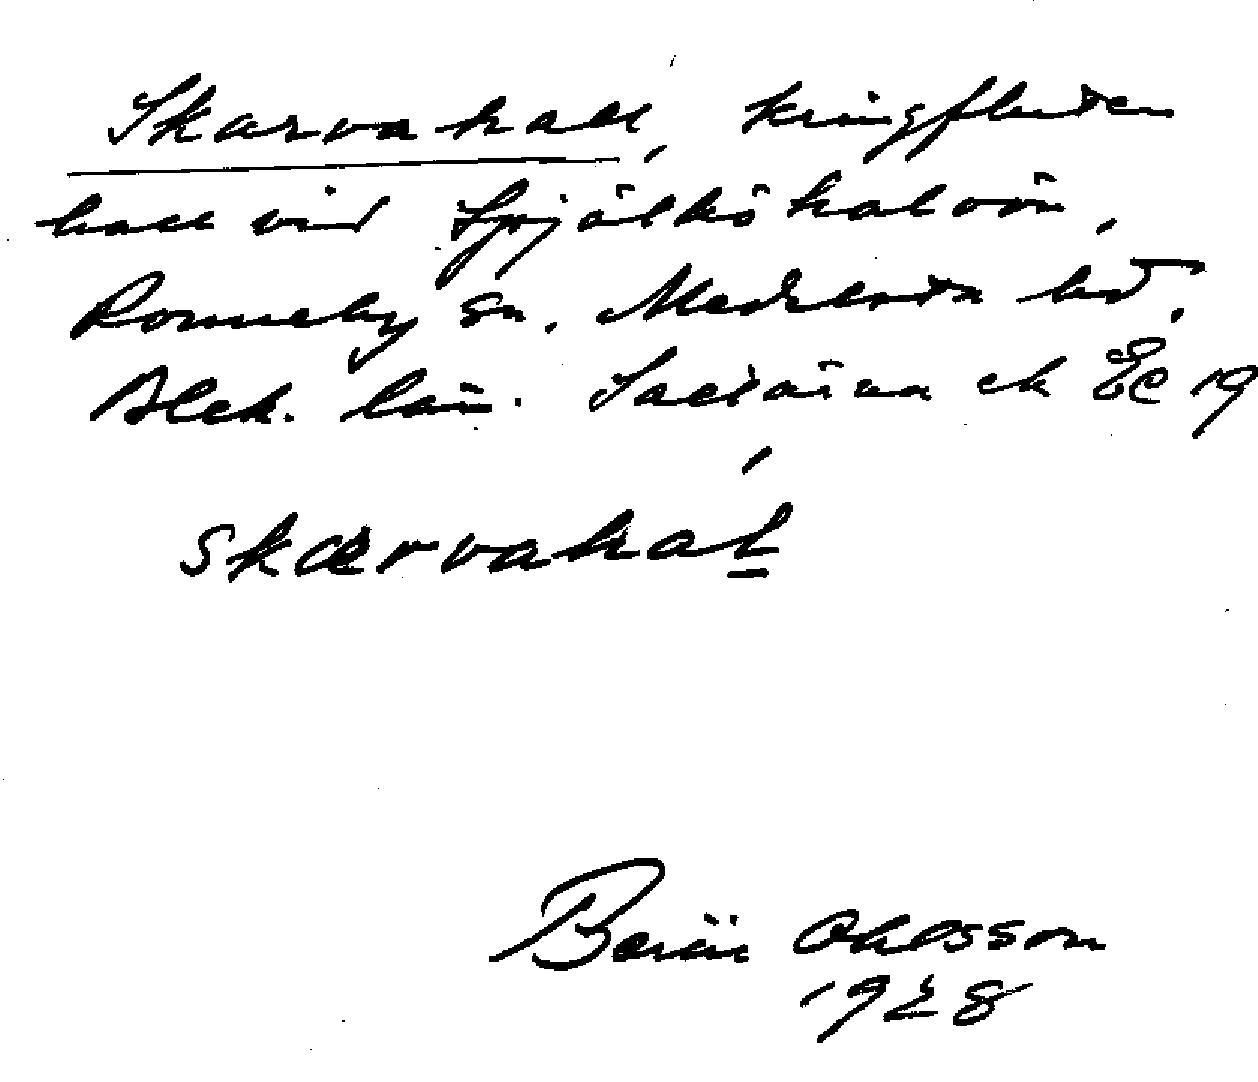 Skarvahall, kringfluten
hall vid Spjälköhalvön,
Ronneby sn. Medelsta hd,
Blek. län. Saltärna ek Ec 19
skærvahal
Bertil Ohlsson
1928